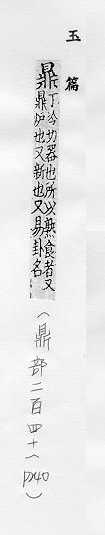 玉篇
鼎 丁冷切器也所以熟食者又
鼎炉也又新也又易卦名
(鼎部二百四十八 p040)